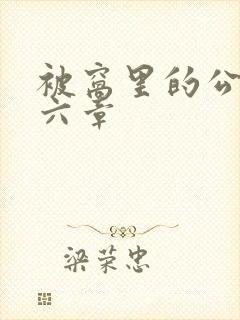 被窝里的公
六章
梁荣忠